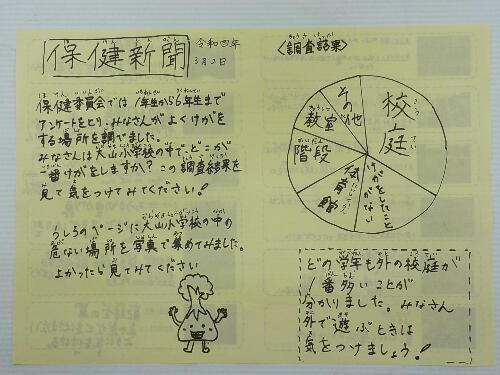 保健新聞
令和四年
3月2日
保健委員会では1年生から6年生まで
アンケートをとり、みなさんがよくけがを
する場所を調べました。
みなさんは大山小学校の中で、どこが
一番けがをしますか？この調査結果を
見て気をつけてみてください！
うしろのページに大山小学校の中の
危ない場所を写真で集めてみました。
よかったら見てみてください
〈調査結果〉
校庭
けがをしたこと
がない
体育館
階段
教室
その他
どの学年も外の校庭が
1番多いことが
分かりました。みなさん
外で遊ぶときは
気をつけましょう！